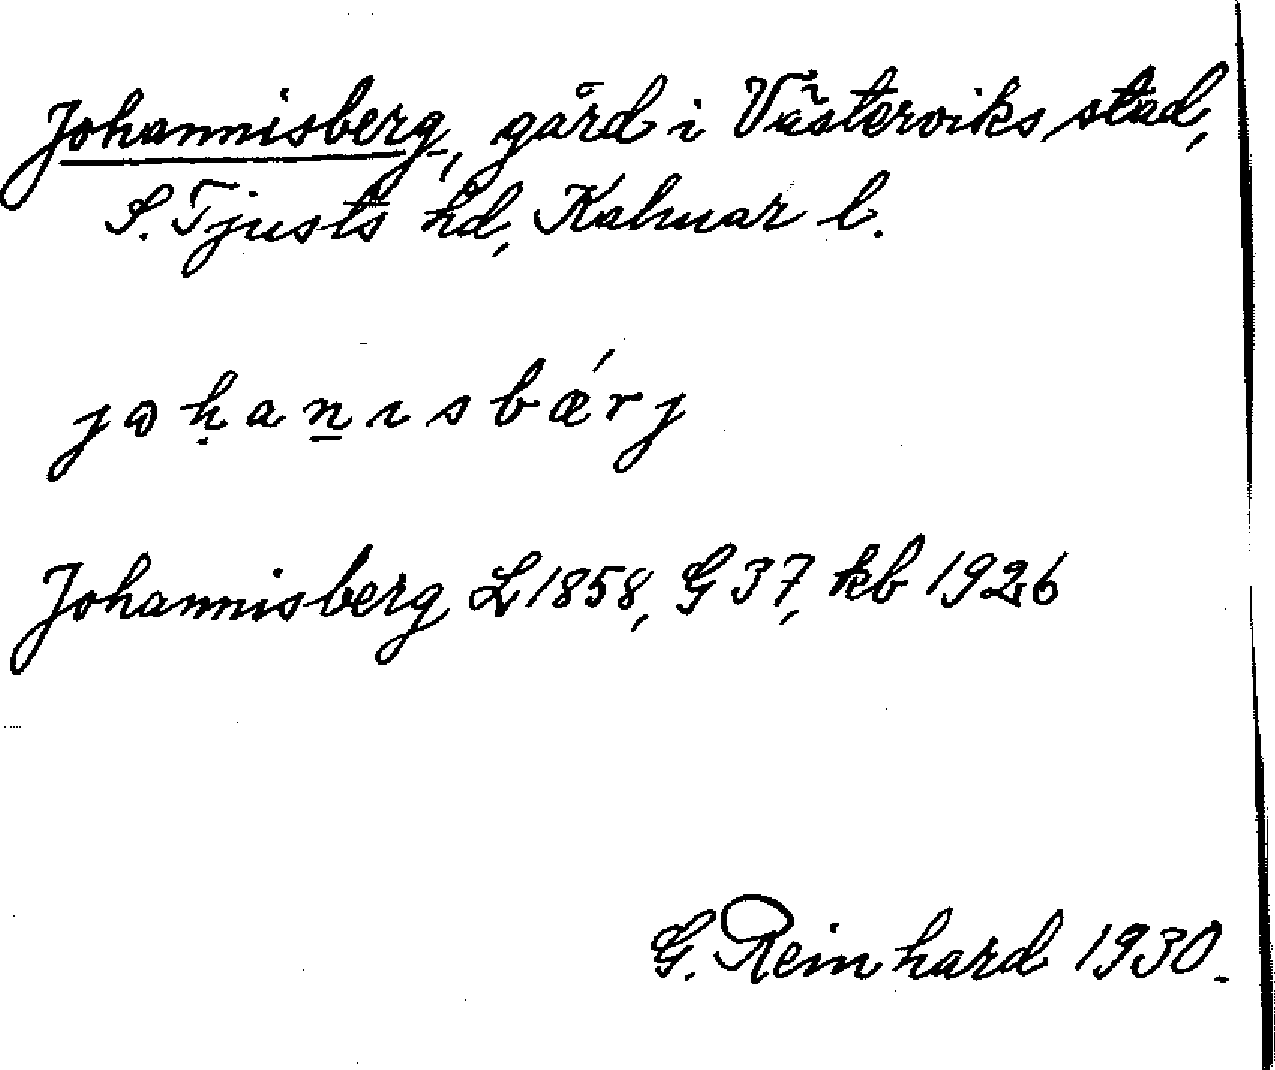 Johannisberg, gård i Västerviks stad,
S. Tjusts hd, Kalmar l.
jo̱ḥaṉısbǽrj
Johannisberg L 1858, G 37, kb 1926
G. Reinhard 1930.